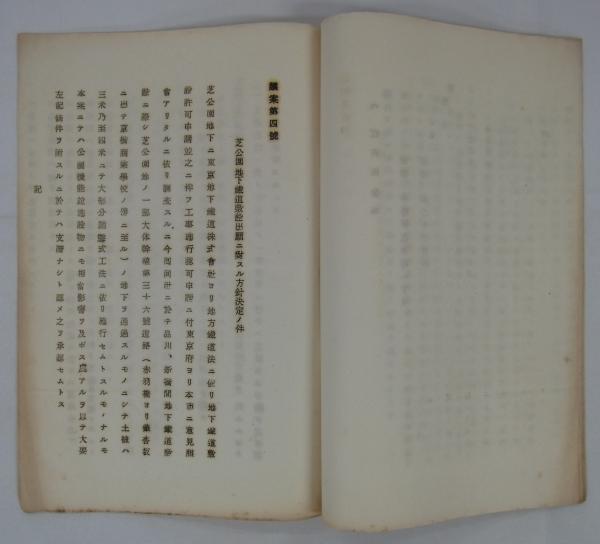 議案第四號
芝公園地下鐵道敷設出願ニ對スル方針決定ノ件
芝公園地下ニ東京地下鐵道株式會社ヨリ地方鐵道法ニ依リ地下鐵道敷
設許可申請並之ニ伴フ工事施行認可申請ニ付東京府ヨリ本市ニ意見照
會アリタルニ依リ調査スルニ今囘同社ニ於テ品川、新橋間地下鐵道敷
設ニ際シ芝公園地ノ一部大体幹線第三十六號道路(赤羽橋ヨリ
ニ出テ京橋商業學校ノ傍ニ至ル)ノ地下ヲ通過スルモノニシテ土被ハ
三米乃至四米ニテ大部分開鑿式工法ニ依リ施行セムトスルモノナルモ
本案ニテハ公園機能竝施設物ニモ相當影響ヲ及ボス虞アルヲ以テ大要
左記條件ヲ附スルニ於テハ支障ナシト認メ之ヲ承認セムトス
記